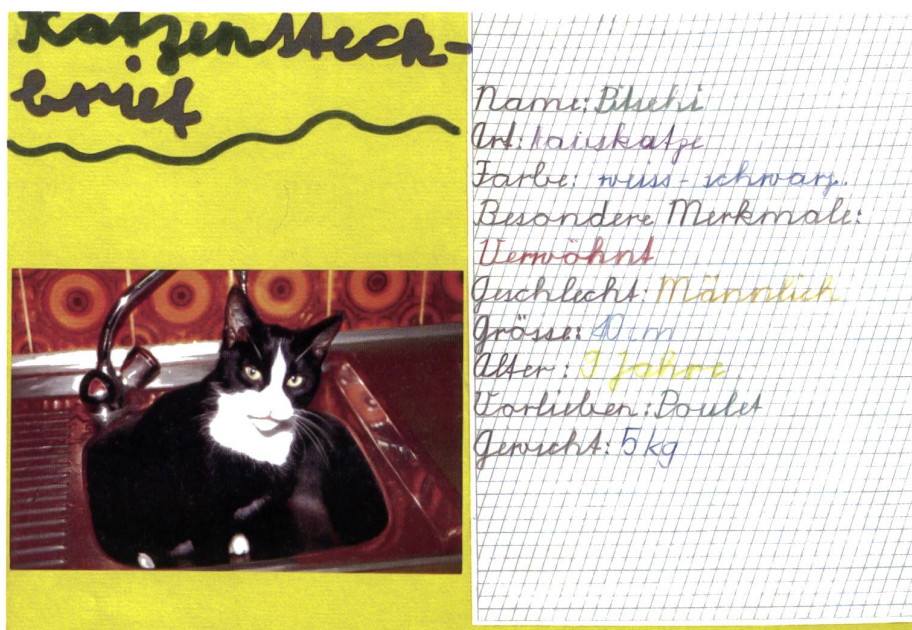 Katzensteck-
brief
Name: Bitschi
Art: Hauskatze
Farbe: weiss-schwarz.
Besondere Merkmale:
Verwöhnt
Geschlecht: Männlich
Grösse: 40 cm
Alter: 9 Jahre
Vorlieben: Poulet
Gewicht: 5 kg